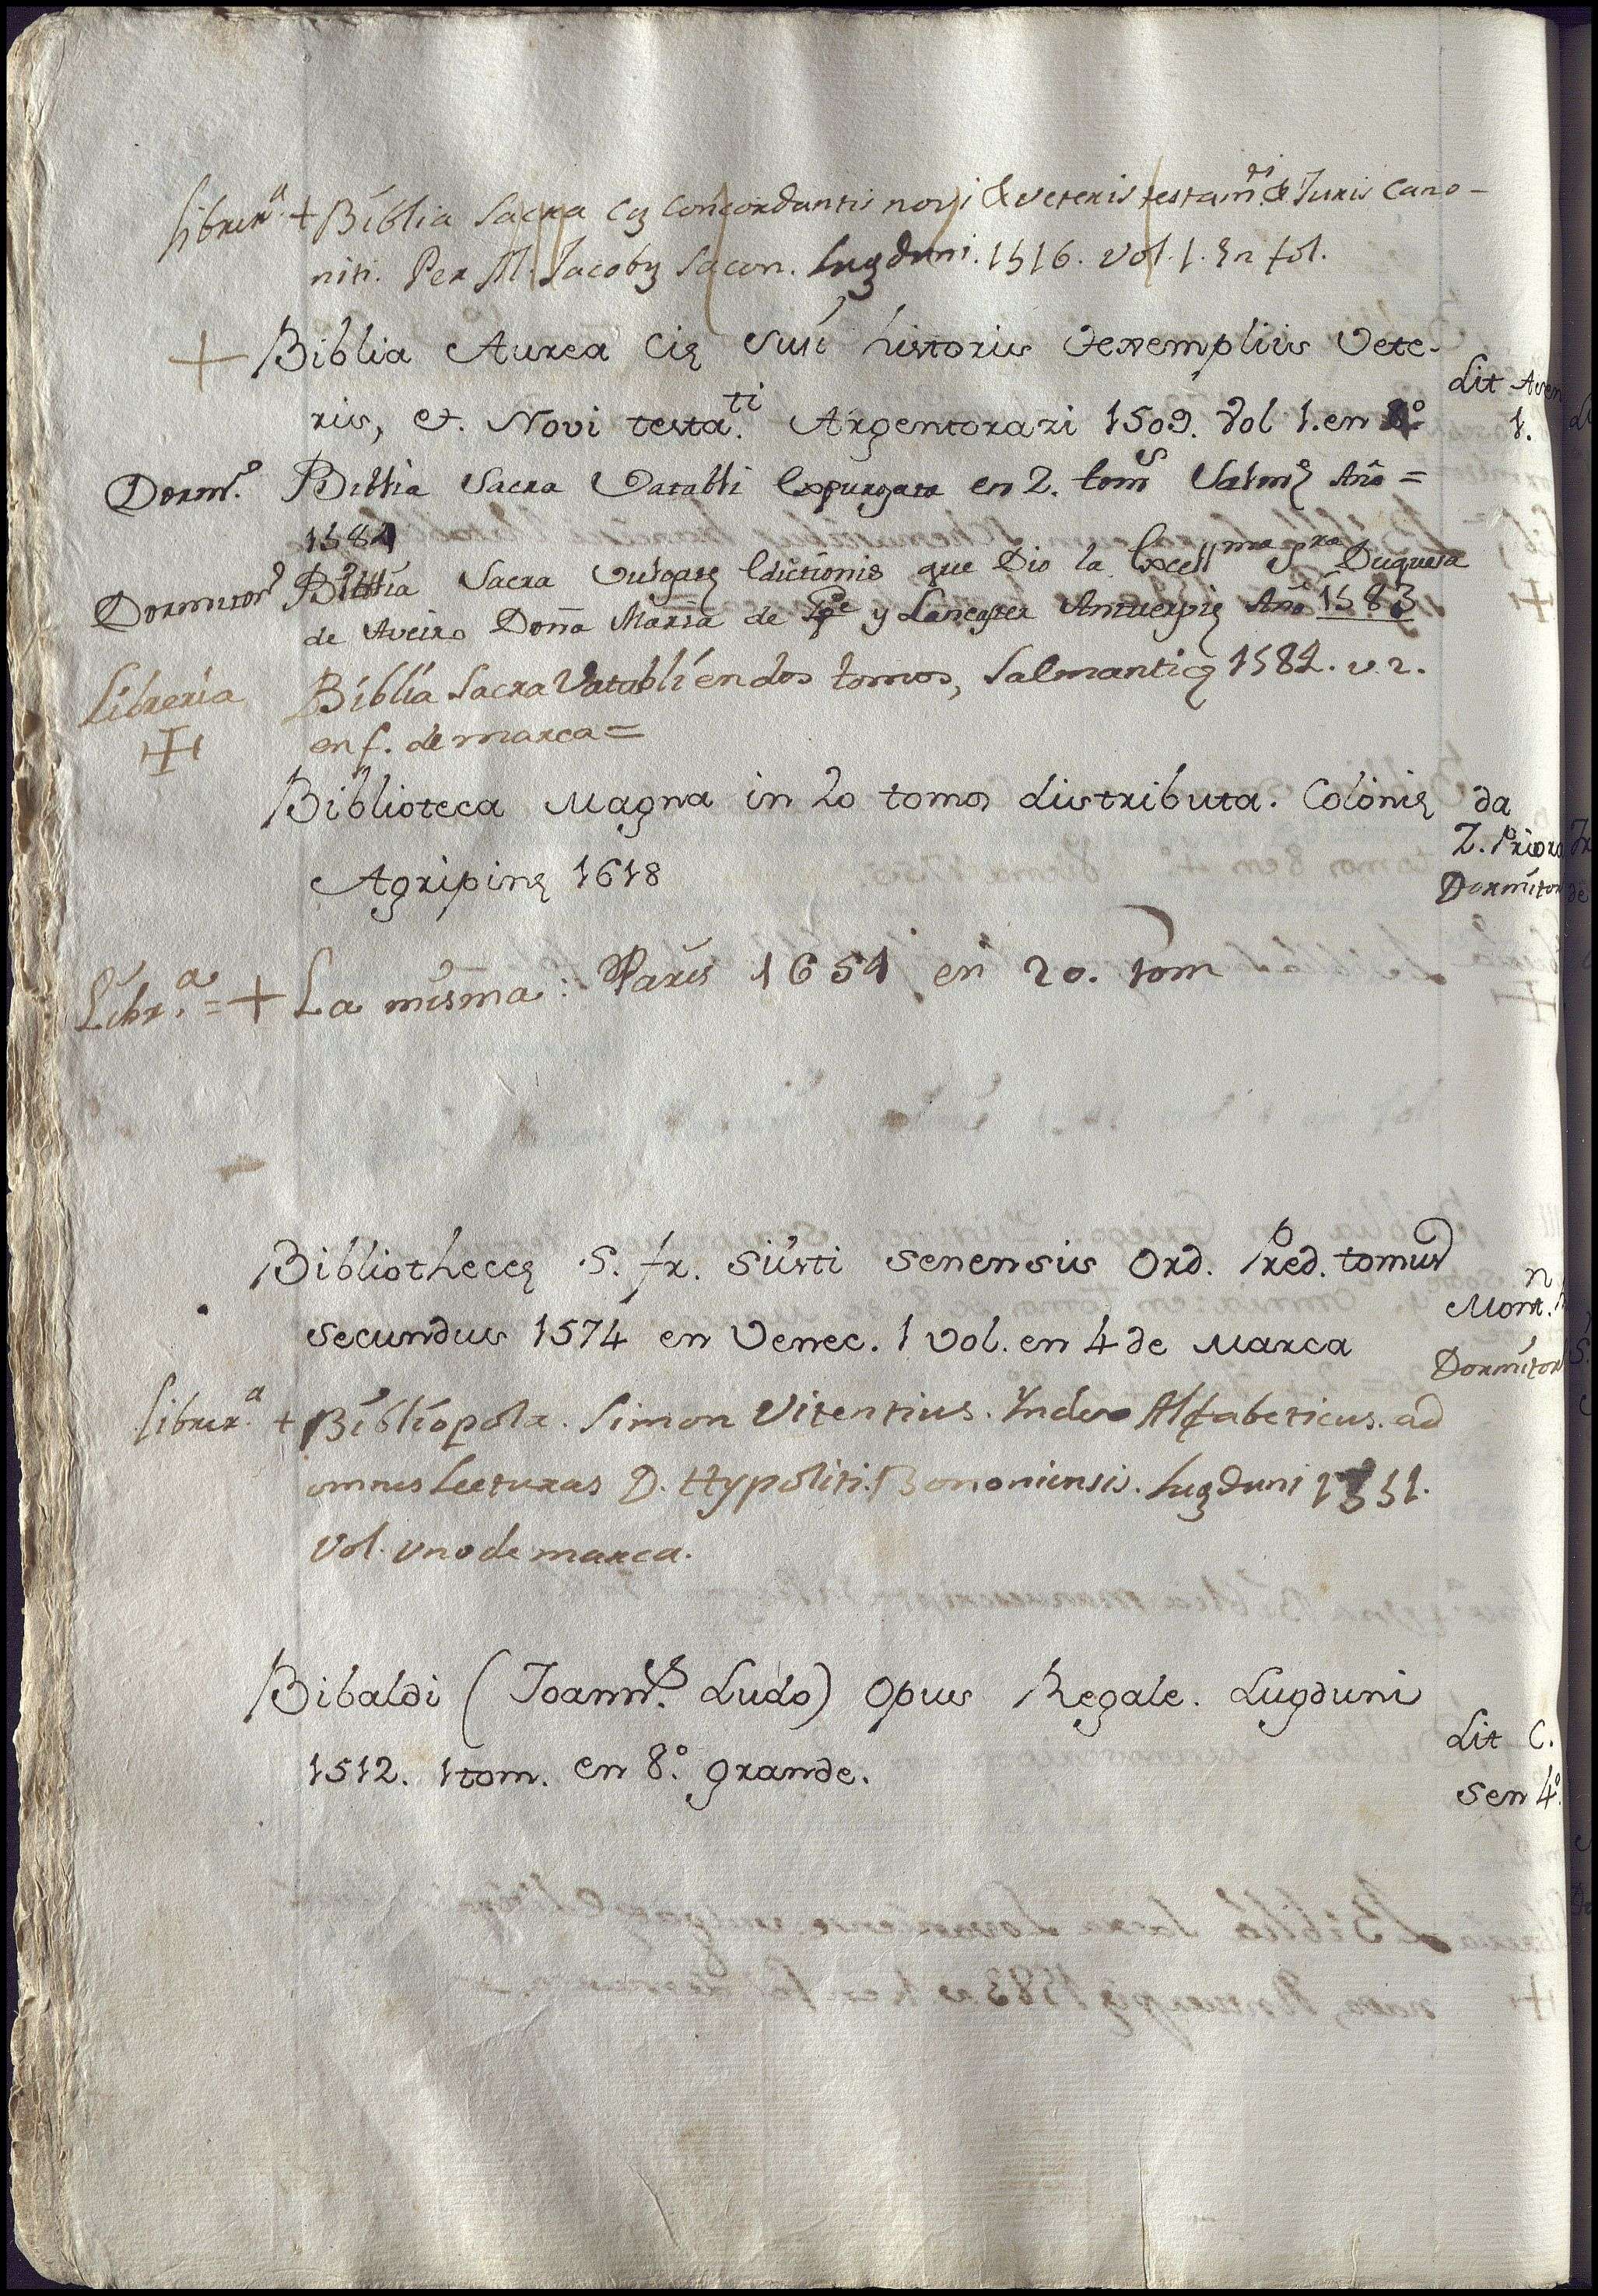 Librer.ª + Biblia Sacra Cũ Concordantis novi & veteris testam.ti & Juris Cano-
niti. Per M. Jacobũ Sacon. Lugduni. 1516. Vol. 1. En fol.
+ Biblia Aurea Cũ suis historiis & exempliis Vete-
ris, et. Novi testa.ti Argentorari 1509. Vol 1. en
Lit Aven
1.
Dorm.º Biblia Sacra Vatabli Expurgata en 2. toms Salmę Año =
1584
Dormitorº Biblia Sacra Vulgatę Edictionis que Dio la Excellma Sra Duquesa
de Aveiro Doña Maria de y Lancaster Antuerpię Año 1583
Libreria Biblia Sacra Vatabli en dos tomos, Salmantię 1584. v. 2.
+ en f. de marca =
Biblioteca Magna in 20 tomos distributa. Colonię
Agripinę 1618
da
2. Prioro
Dormitor
Libr.ª = + La misma: Paris 1654 en 20. tom
Bibliothecę S. fr. Sixti Senensis Ord. Pred. tomus
secundus 1574 en Venec. 1 vol. en 4 de Marca
n
Mont.
Dormitor
Librer.ª + Bibliopola. Simon Vitentius. Index Alfabeticus. ad
omnes Lecturas D. Hypoliti. Bononiensis. Lugduni
Vol. uno de marca.
Bibaldi (Joann.s Ludo) Opus Regale. Lugduni
1512. 1 tom. en 8.º grande.
Lit C.
S en 4.º